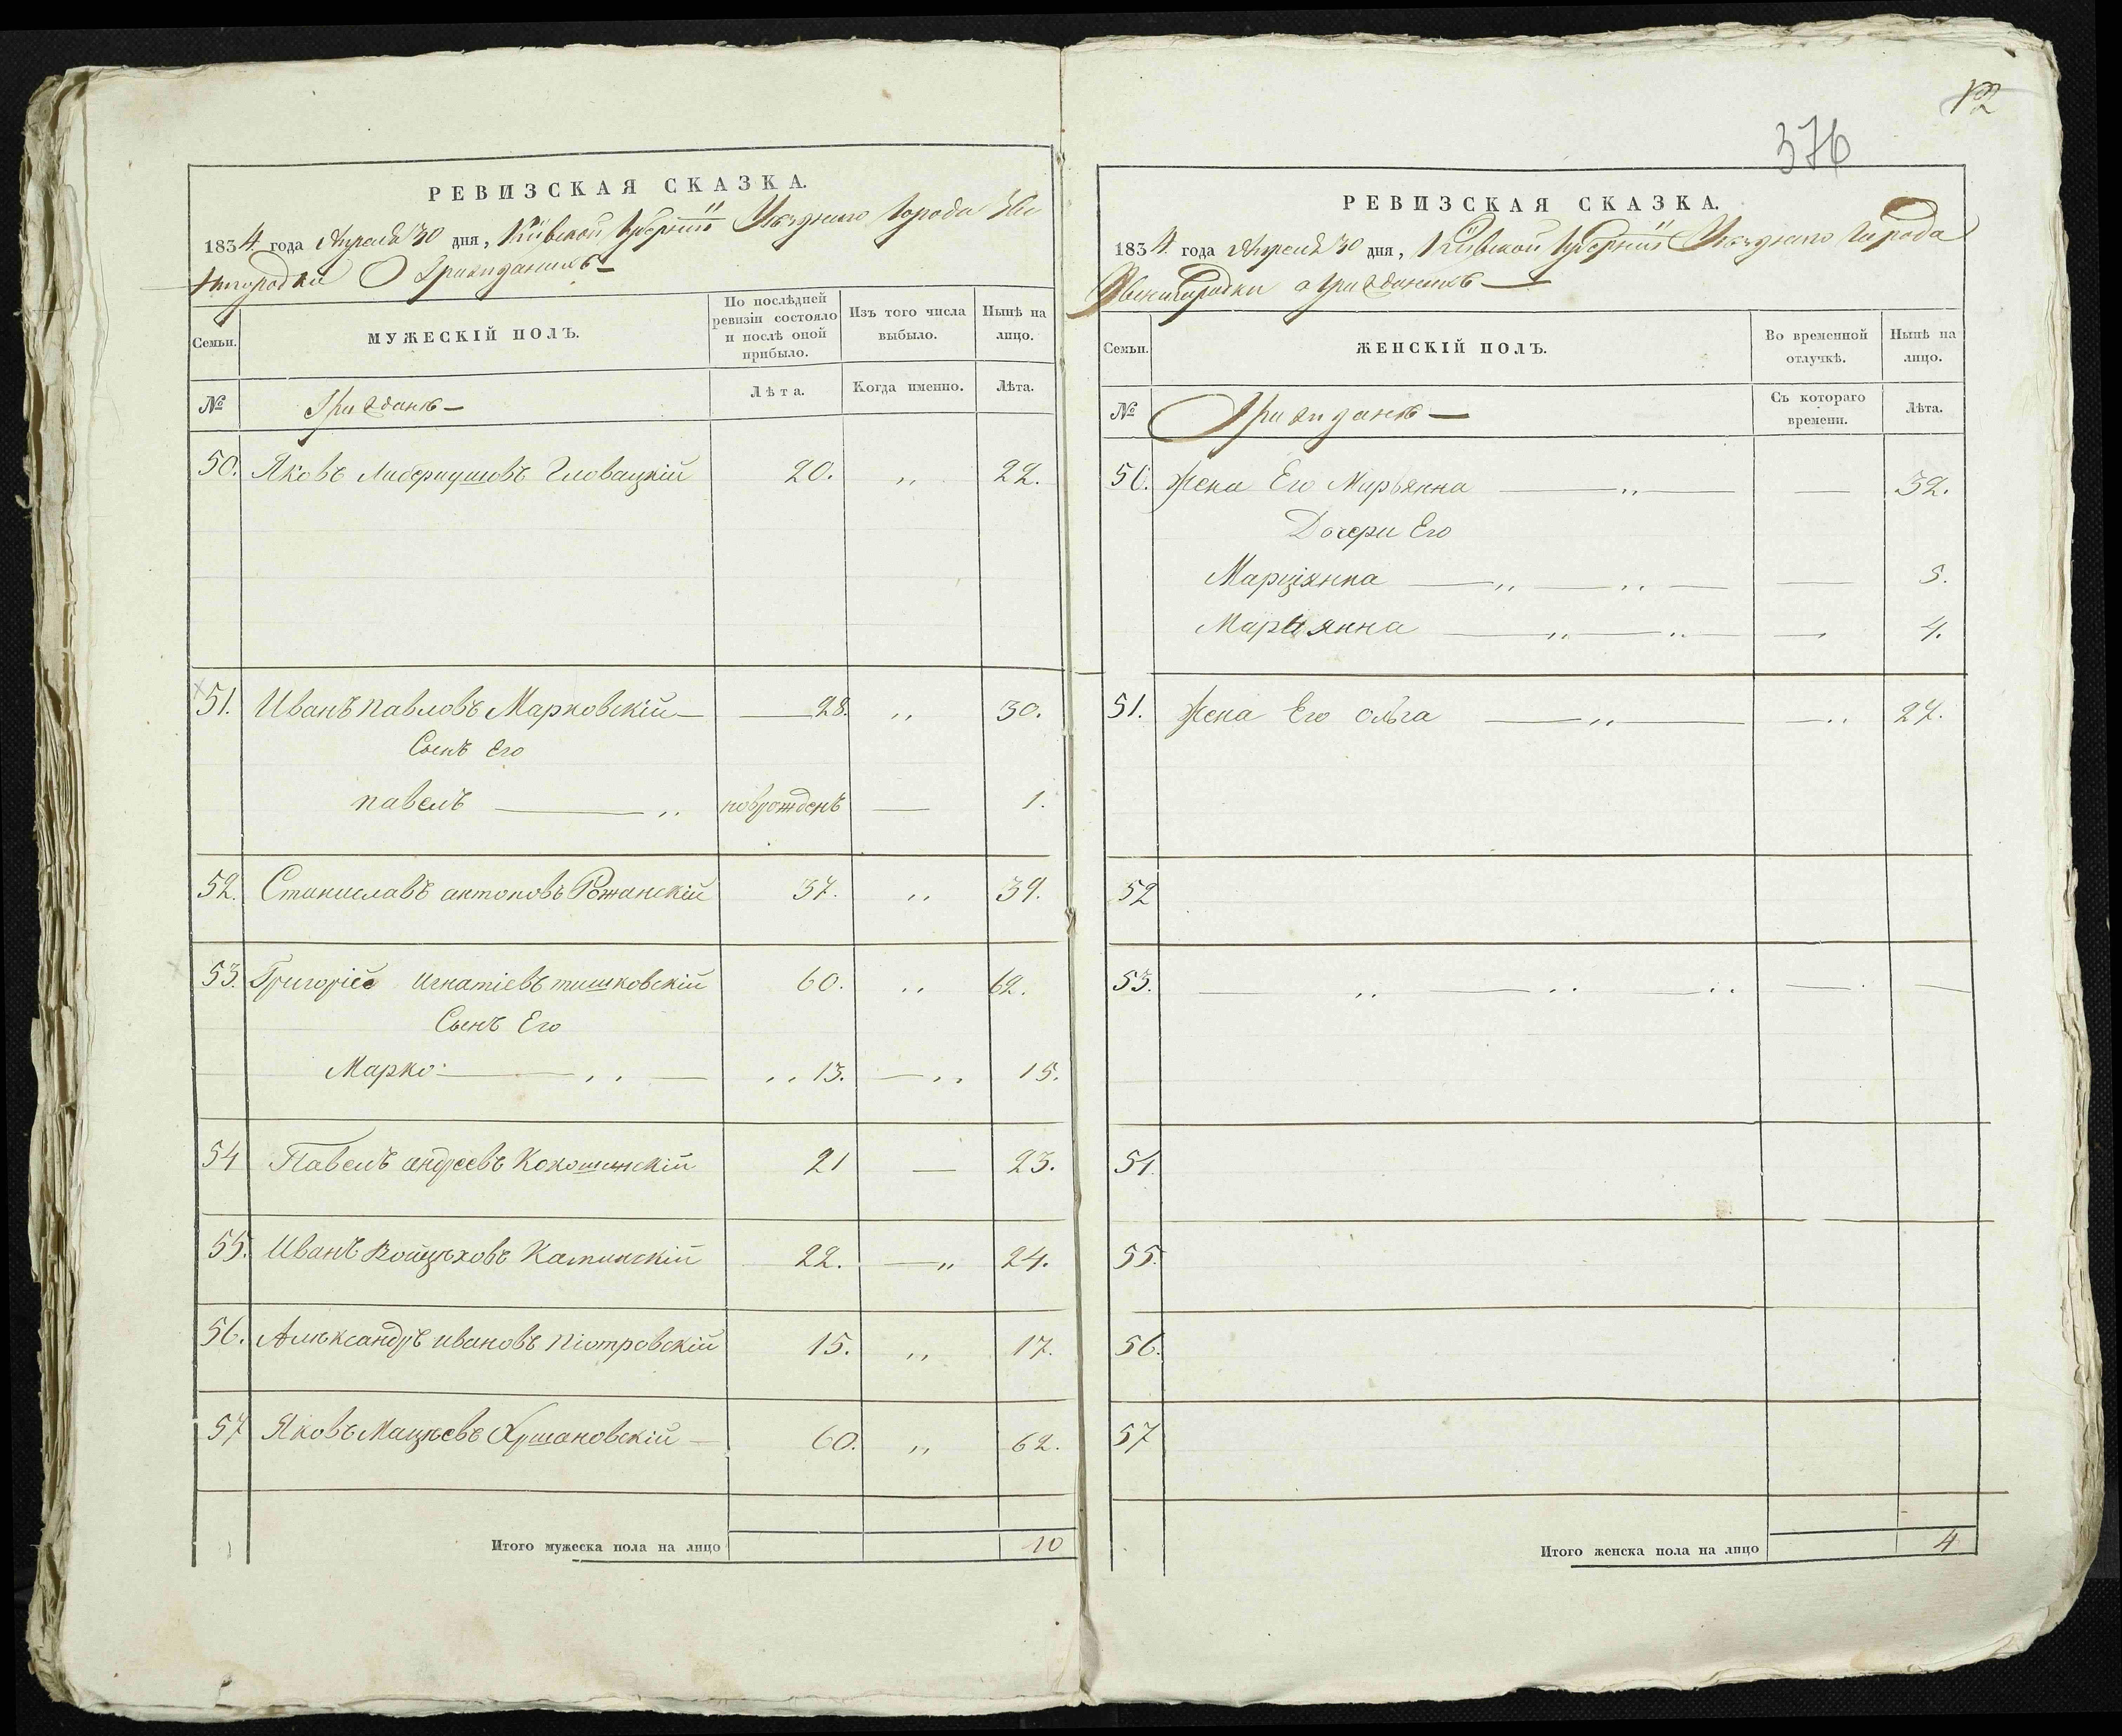 РЕВИЗСКАЯ СКАЗКА.
1834. года Апреля 30 дня, Кіевской Губерніи Уѣзднаго Города Зве
нигородки О Гражданахъ—
Семьи.
МУЖЕСКІЙ ПОЛЪ.
По послѣдней ревизіи состояло и послѣ оной прибыло.
Изъ того числа выбыло.
Нынѣ на лицо.
№
Гражданъ—
Лѣта.
Когда именно.
Лѣта.
50. Яковъ Гловацкій 20. „ 22.
51. Иванъ павловъ Марковскій — 28. „ 30.
Сынъ Его
павелъ — „ новорожденъ — 1.
52. Станиславъ антоновъ Рожанскій 37. „ 39.
53. Григорій игнатіевъ тишковскій 60. „ 62.
Сынъ Его
Марко — „ — „ 13. — „ 15.
54 Павелъ андреевъ Кокошинскій 21 — 23.
55. Иванъ Войцѣховъ Каминскій 22. — „ 24.
56. Алѣксандръ ивановъ піотровскій 15. „ 17.
57 Яковъ Мацѣевъ Хршановскій — 60. „ 62.
Итого мужеска пола на лицо 10
12
376
РЕВИЗСКАЯ СКАЗКА.
1834. года Апреля 30 дня, Кіевской Губерніи Уѣзднаго Города
Звенигородки о гражданахъ —
Семьи.
ЖЕНСКІЙ ПОЛЪ.
Во временной отлучкѣ.
Нынѣ на лицо.
№
Гражданъ —
Съ котораго времени.
Лѣта.
50. Жена Его Марьянна — „ — — 32.
Дочери Его
Марціянна — „ — „ — — 5.
Марьянна — „ — „ — 4.
51. Жена Его ольга — „ — — „ 27.
52
53. — „ — „ — „ — —
54.
55.
56.
57
Итого женска пола на лицо 4